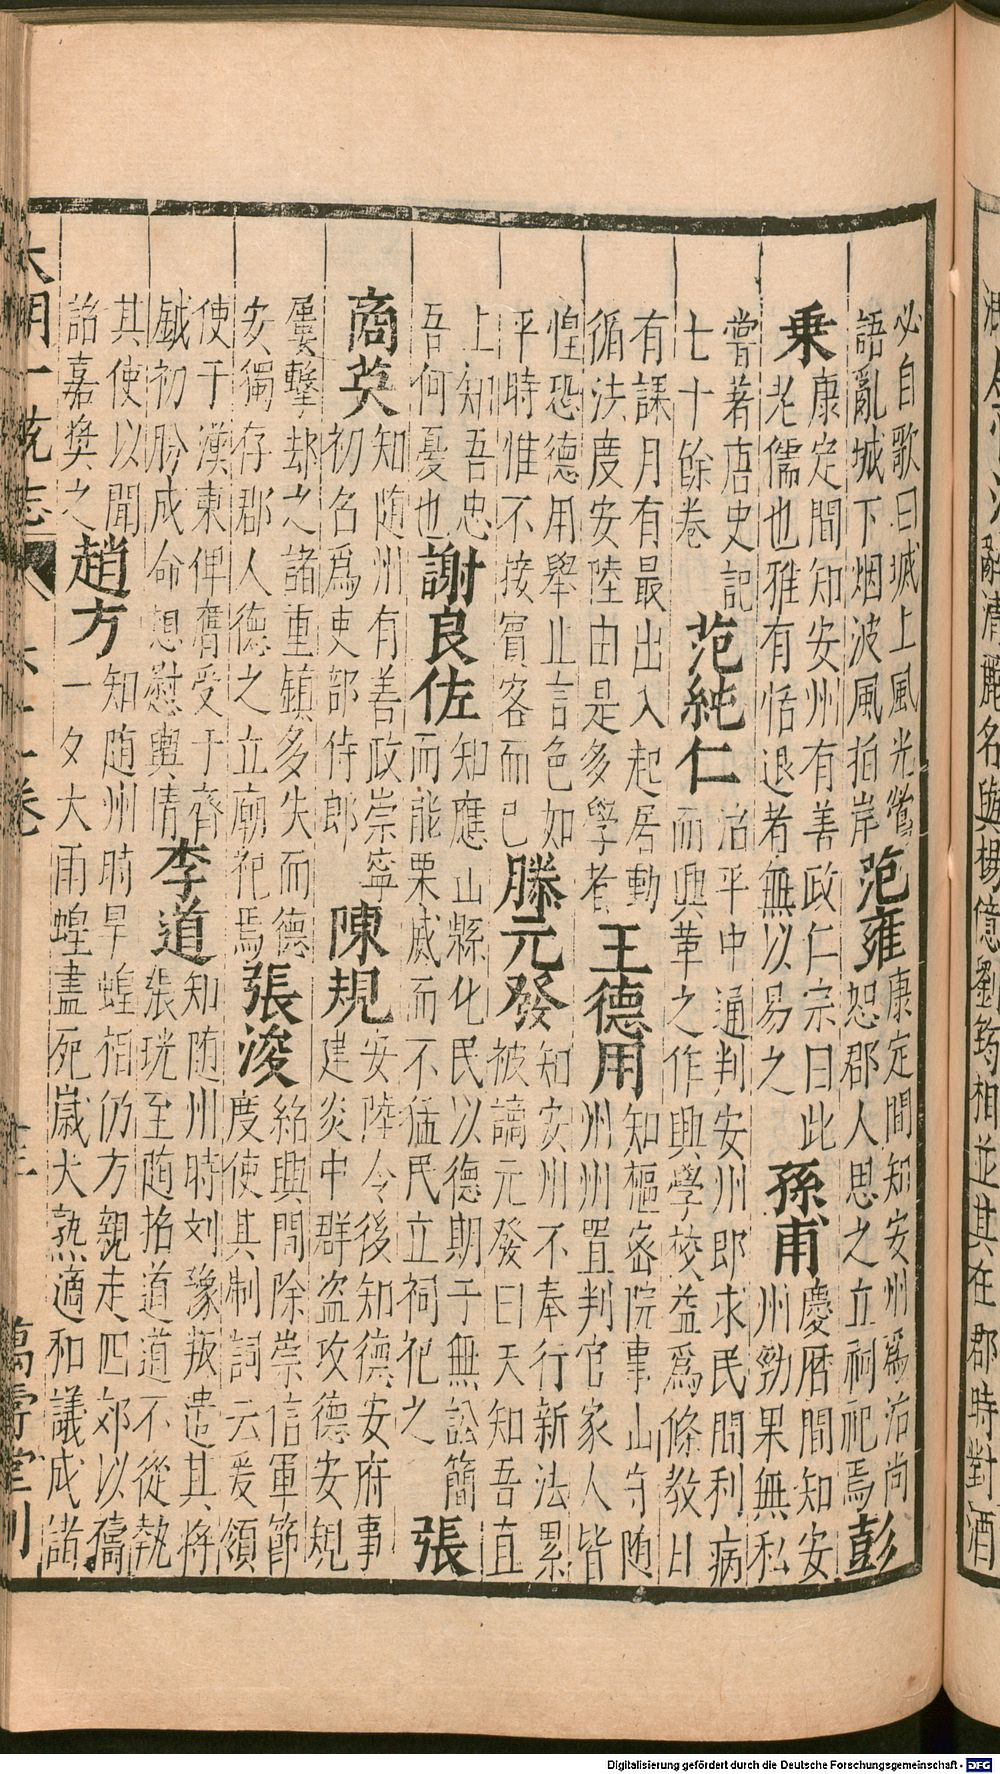 辭清麗名與楊億劉筠相並其在郡時對酒
必自歌曰城上風光鶯
語亂城下烟波風拍岸
范雍
康定間知安州爲治尚
恕郡人思之立祠祀焉
彭
乗
康定間知安州有善政仁宗曰此
老儒也雅有恬退者無以易之
孫甫
慶曆間知安
州勁果無私
嘗著唐史記
七十餘卷
范純仁
治平中通判安州即求民間利病
而興革之作興學校益爲條教日
有課月有最出入起居動
循法度安陸由是多學者
王德用
知樞密院事山守随
州州置判官家人皆
惶恐德用舉止言色如
平時惟不接賓客而已
滕元發
知安州不奉行新法累
被謫元發曰天知吾直
上知吾忠
吾何憂也
謝良佐
知應山縣化民以德期于無訟簡
而能栗威而不猛民立祠祀之
張
商英
知随州有善政崇寧
初名爲吏部侍郎
陳規
安陸令後知德安府事
建炎中群盗攻德安規
屢擊却之諸重鎮多失而德
安獨存郡人德之立廟祀焉
張浚
紹興間除崇信軍節
度使其制詞云爰領
使于漢東俾膺受于齊
鉞初肹成命想慰輿情
李道
知随州時刘豫叛遣其将
張珖至随招道道不從執
其使以聞
詔嘉奬之
趙方
知随州時旱蝗相仍方親走四郊以禱
一夕大雨蝗盡死歲大熟適和議成諸
大明一統志
萬壽堂刊
Digitalisierung gefördert durch die Deutsche Forschungsgemeinschaft - DFG